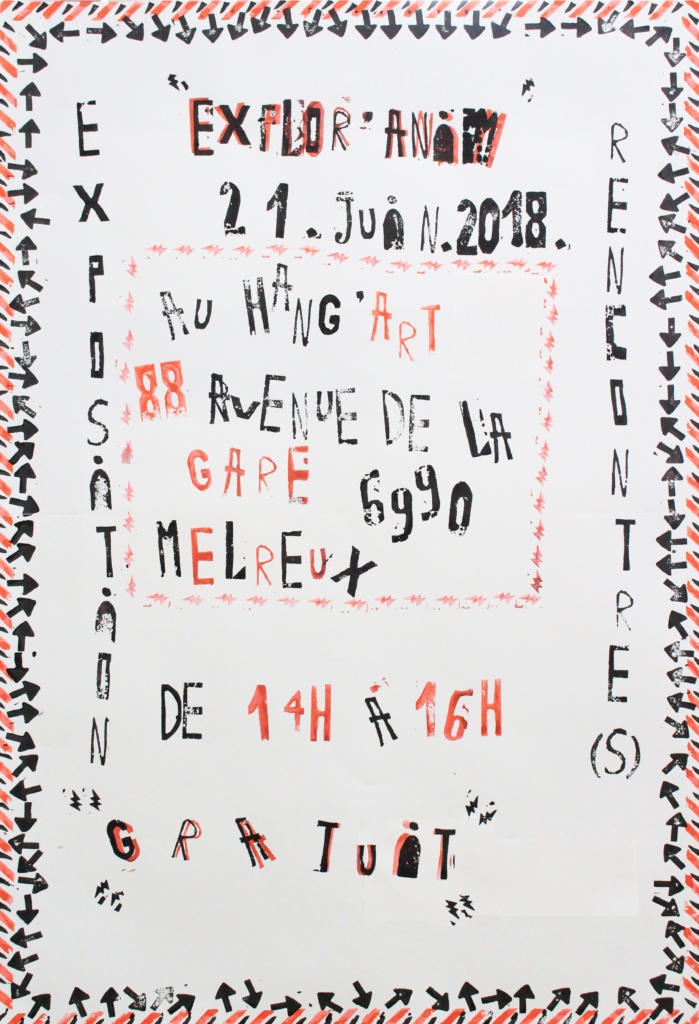 "EXPLOR'ANiM"
21.JUiN.2018.
EXPOSiTiON
RENCONTRE(S)
AU HANG'ART
88 AVENUE DE LA
GARE 6990
MELREUX
DE 14H À 16H
"GRATUiT"